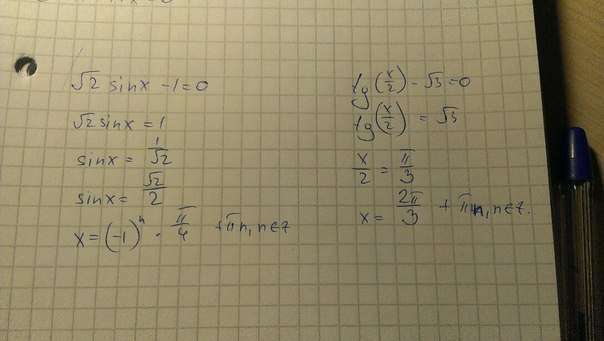 √2 sinx - 1 = 0
√2 sinx = 1
sinx = 1/√2
sinx = √2/2
x = (-1)^n · π/4 + πn, n∈z
tg(x/2) - √3 = 0
tg(x/2) = √3
x/2 = π/3
x = 2π/3 + πn, n∈z.